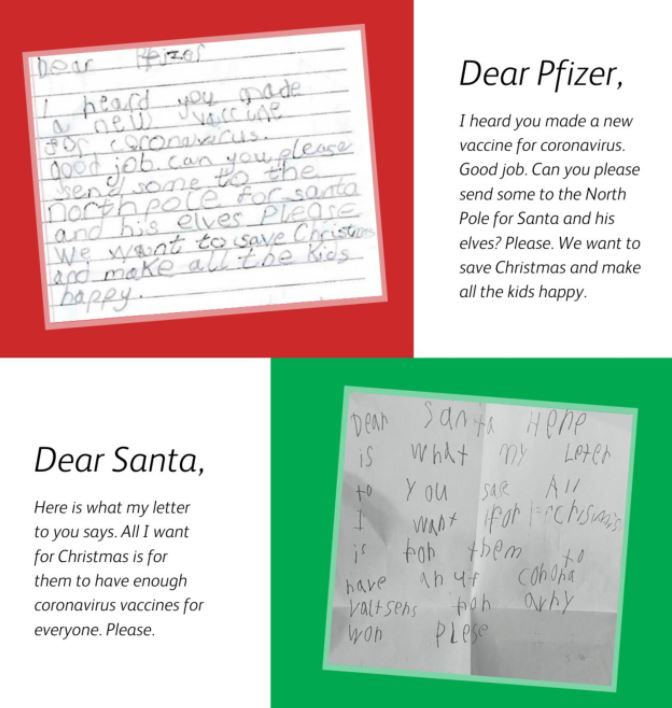 Dear Pfizer
I heard you made
a new vaccine
for coronavirus.
good job. can you please
send some to the
north pole for santa
and his elves please
We want to save Christmas
and make all the kids
happy.
Dear Pfizer,
I heard you made a new
vaccine for coronavirus.
Good job. Can you please
send some to the North
Pole for Santa and his
elves? Please. We want to
save Christmas and make
all the kids happy.
Dear Santa,
Here is what my letter
to you says. All I want
for Christmas is for
them to have enough
coronavirus vaccines for
everyone. Please.
Dear Santa Hene
is what my Leter
to you sase All
I want for
is for them to
have an uf cohona
valtsens for
won plese